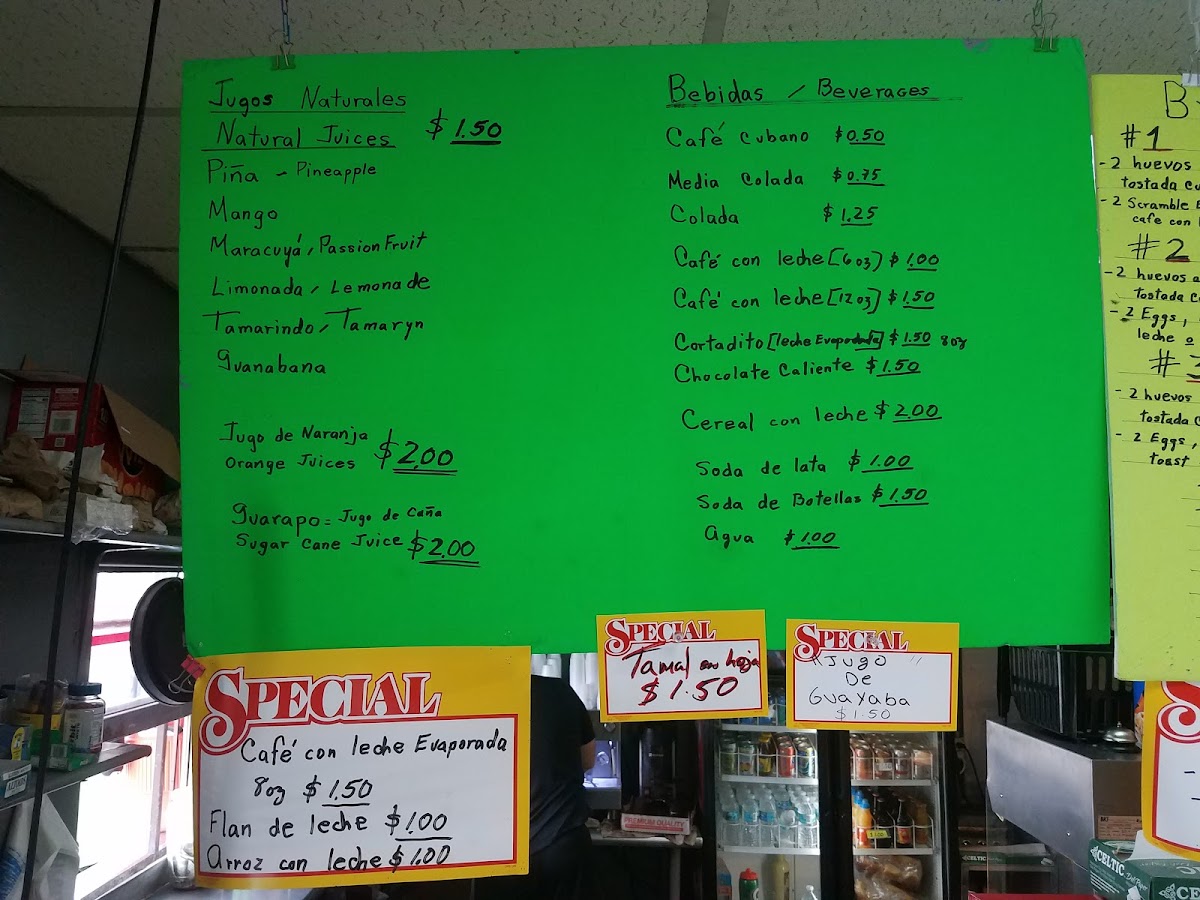 Jugos Naturales
Natural Juices $1.50
Piña - Pineapple
Mango
Maracuyá, Passion Fruit
Limonada, Lemonade
Tamarindo, Tamaryn
Guanabana
Jugo de Naranja
Orange Juices $2.00
Guarapo = Jugo de Caña
Sugar Cane Juice $2.00
Bebidas / Beverages
Café Cubano $0.50
Media Colada $0.75
Colada $1.25
Café con leche [6oz] $1.00
Café con leche [12oz] $1.50
Cortadito [leche Evaporada] $1.50 8oz
Chocolate Caliente $1.50
Cereal con leche $2.00
Soda de lata $1.00
Soda de Botellas $1.50
Agua $1.00
#1
- 2 huevos
tostada
- 2 Scramble
cafe con
#2
- 2 huevos
Tostada
- 2 Eggs,
leche o
#3
- 2 huevos
tostada
- 2 Eggs,
toast
SPECIAL
Café con leche Evaporada
8oz $1.50
Flan de leche $1.00
Arroz con leche $1.00
SPECIAL
Tamal en hoja
$1.50
SPECIAL
"Jugo"
De
Guayaba
$1.50
PREMIUM QUALITY
CELTIC